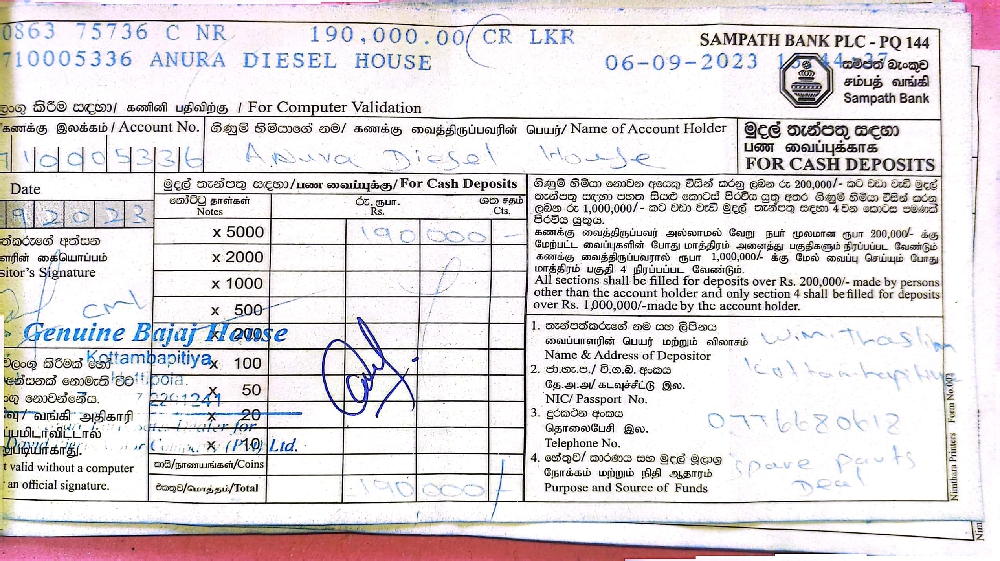 0863 75736 C NR 190,000.00 CR LKR
SAMPATH BANK PLC - PQ 144
710005336 ANURA DIESEL HOUSE 06-09-2023
සම්පත් බැංකුව
சம்பத் வங்கி
Sampath Bank
ලංගු කිරීම සඳහා/ கணினி பதிவிற்கு / For Computer Validation
கணக்கு இலக்கம் / Account No.
ගිණුම් හිමියාගේ නම/ கணக்கு வைத்திருப்பவரின் பெயர்/ Name of Account Holder
10005336 Anura Diesel House
මුදල් තැන්පතු සඳහා
பண வைப்புக்காக
FOR CASH DEPOSITS
Date
92023
මුදල් තැන්පතු සඳහා/பண வைப்புக்கு/For Cash Deposits
නෝට්ටු தாள்கள் රු. ரூபா. ශත சதம்
Notes Rs. Cts.
x 5000 190000 -
x 2000
x 1000
x 500
x 200
x 100
x 50
x 20
x 10
කාසි/நாணயங்கள்/Coins
එකතුව/மொத்தம்/Total 190000/-
ත්කරුගේ අත්සන
ளரின் கையொப்பம்
sitor's Signature
Genuine Bajaj House
Kottambapitiya,
Hettipola.
2291241
ලංගු කිරීමක් හෝ
නොමැති විට
ගු නොවන්නේය.
வங்கி அதிகாரி
ப்பமிடாவிட்டால்
படியாகாது.
Dealer for
David (PVT) Ltd.
t valid without a computer
an official signature.
ගිණුම් හිමියා නොවන අයෙකු විසින් කරනු ලබන රු 200,000/- කට වඩා වැඩි මුදල්
තැන්පතු සඳහා පහත සියළු කොටස් පිරවිය යුතු අතර ගිණුම් හිමියා විසින් කරනු
ලබන රු 1,000,000/- කට වඩා වැඩි මුදල් තැන්පතු සඳහා 4 වන කොටස පමණක්
පිරවිය යුතුය.
கணக்கு வைத்திருப்பவர் அல்லாமல் வேறு நபர் மூலமான ரூபா 200,000/- க்கு
மேற்பட்ட வைப்புகளின் போது மாத்திரம் அனைத்து பகுதிகளும் நிரப்பபட வேண்டும்
கணக்கு வைத்திருப்பவரால் ரூபா 1,000,000/- க்கு மேல் வைப்பு செய்யும் போது
மாத்திரம் பகுதி 4 நிரப்பப்பட வேண்டும்.
All sections shall be filled for deposits over Rs. 200,000/- made by persons
other than the account holder and only section 4 shall be filled for deposits
over Rs. 1,000,000/-made by the account holder.
1. තැන්පත්කරුගේ නම සහ ලිපිනය
வைப்பாளரின் பெயர் மற்றும் விலாசம்
Name & Address of Depositor
W.M. Thaslim
Kottambapitiya
2. ජා.හැ.ප./ වි.ග.බ. අංකය
தே.அ.அ/ கடவுச்சீட்டு இல.
NIC/ Passport No.
3. දුරකථන අංකය
தொலைபேசி இல.
Telephone No.
0776680612
4. හේතුව/ කාරණය සහ මුදල් මූලාශ්‍ර
நோக்கம் மற்றும் நிதி ஆதாரம்
Purpose and Source of Funds
Spare parts
Deal
Nimthara Printers Form No.003